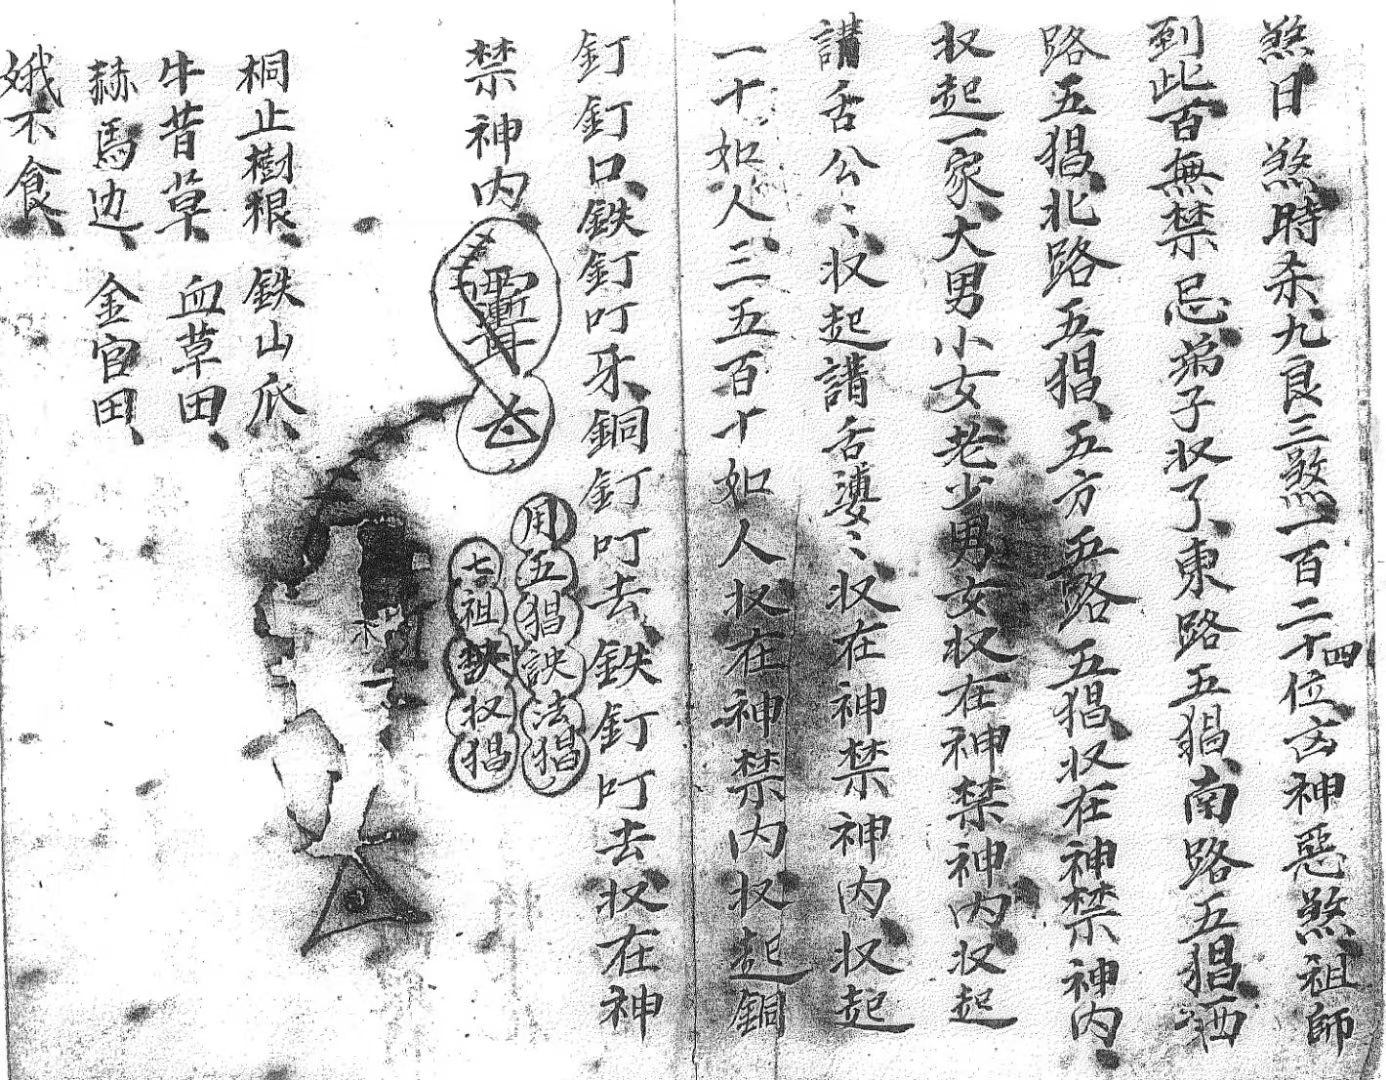 煞日煞時杀九良三煞一百二十四位凶神惡煞祖師
到此百無禁忌弟子収了東路五猖南路五猖西
路五猖北路五猖五方五路五猖収在神禁神内
収起一家大男小女老少男女収在神禁神内収起
譛舌公〻収起譛舌婆〻収在神禁神内収起
一十如人三五百十如人収在神禁内収起銅
釘釘口鉄釘叮牙銅釘叮去鉄釘叮去収在神
禁神内
用五猖訣法猖
七祖訣収猖
桐止樹根鉄山瓜
牛昔草血草田
赫馬边金官田
娥不食